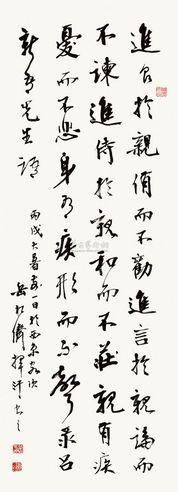 進食於親侑而不勸進言於親論而
不諫進侍於親和而不莊親有疾
憂而不悲身有疾形而不聲錄呂
新吾先生語
丙戌大暑前一日於西
岳揮汗書之